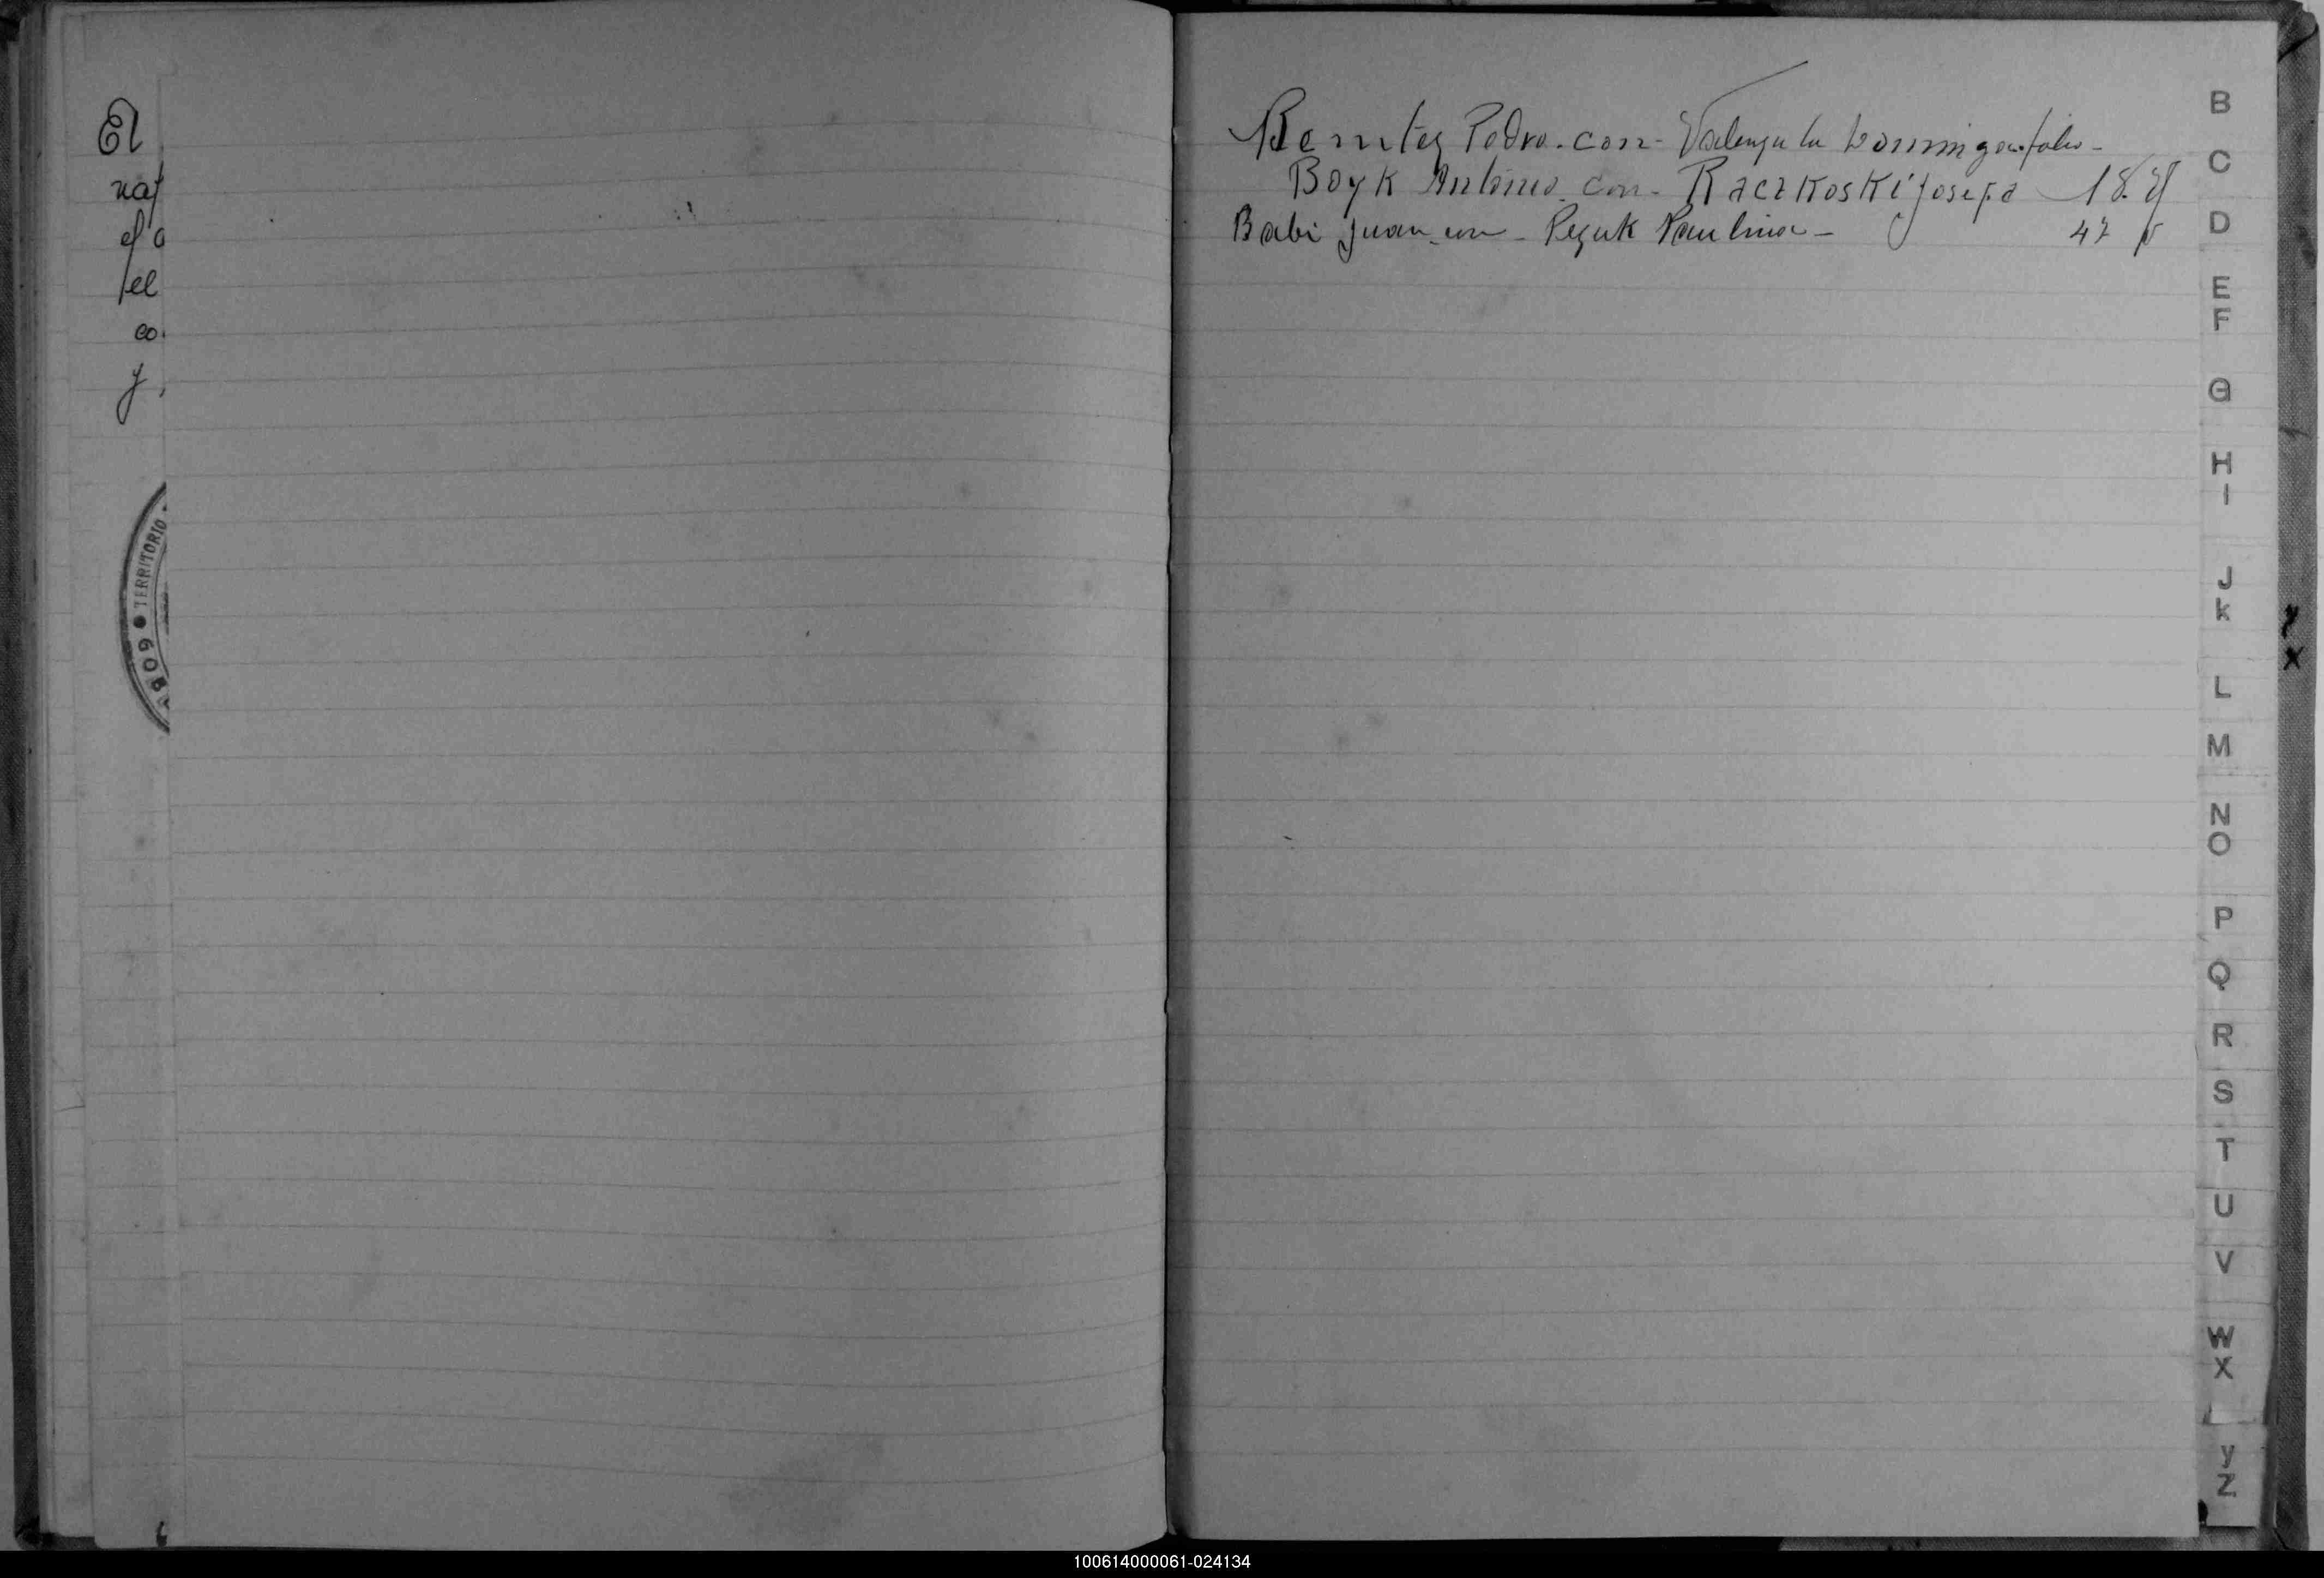 El
naf
el
co.
y
GOB
TERRITORIO
Benitez Pedro. con - Valenzuela Dominga. folio -
Boyk Antonio. con - Raczkoski Josefa 18. y
Babi Juan con - Pezuk Paulina - 47
B
C
D
E
F
G
H
I
J
K
L
M
N
O
P
Q
R
S
T
U
V
W
X
y
Z
100614000061-024134